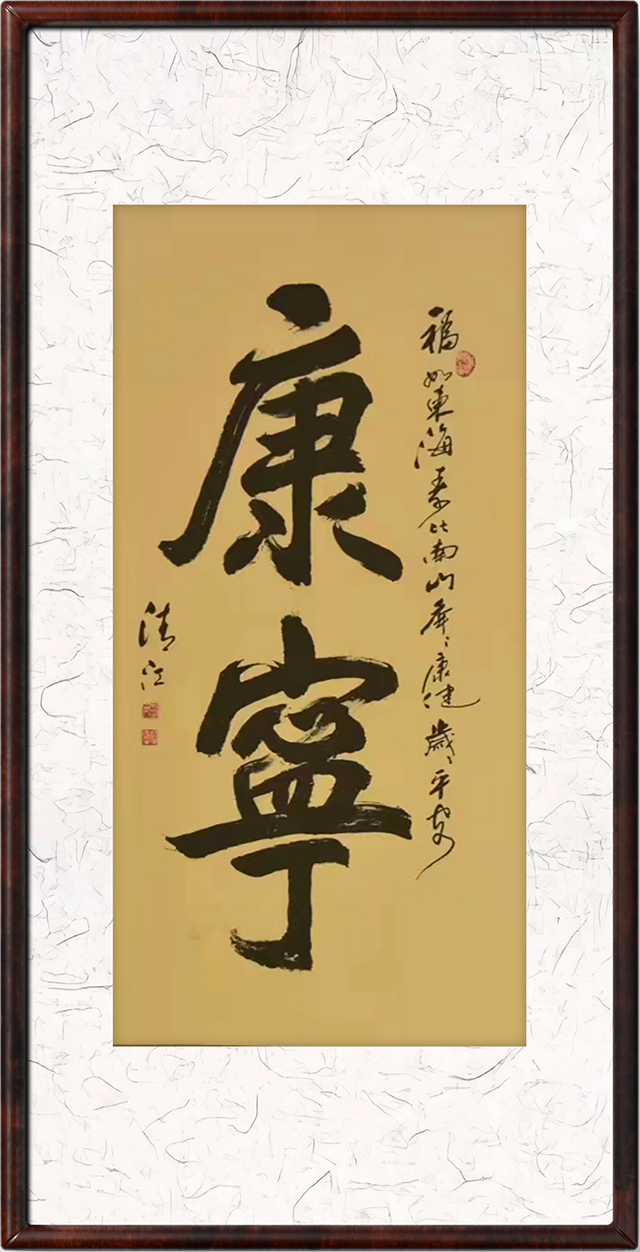 福如東海壽比南山年々康健歲々平安
康寧
清江